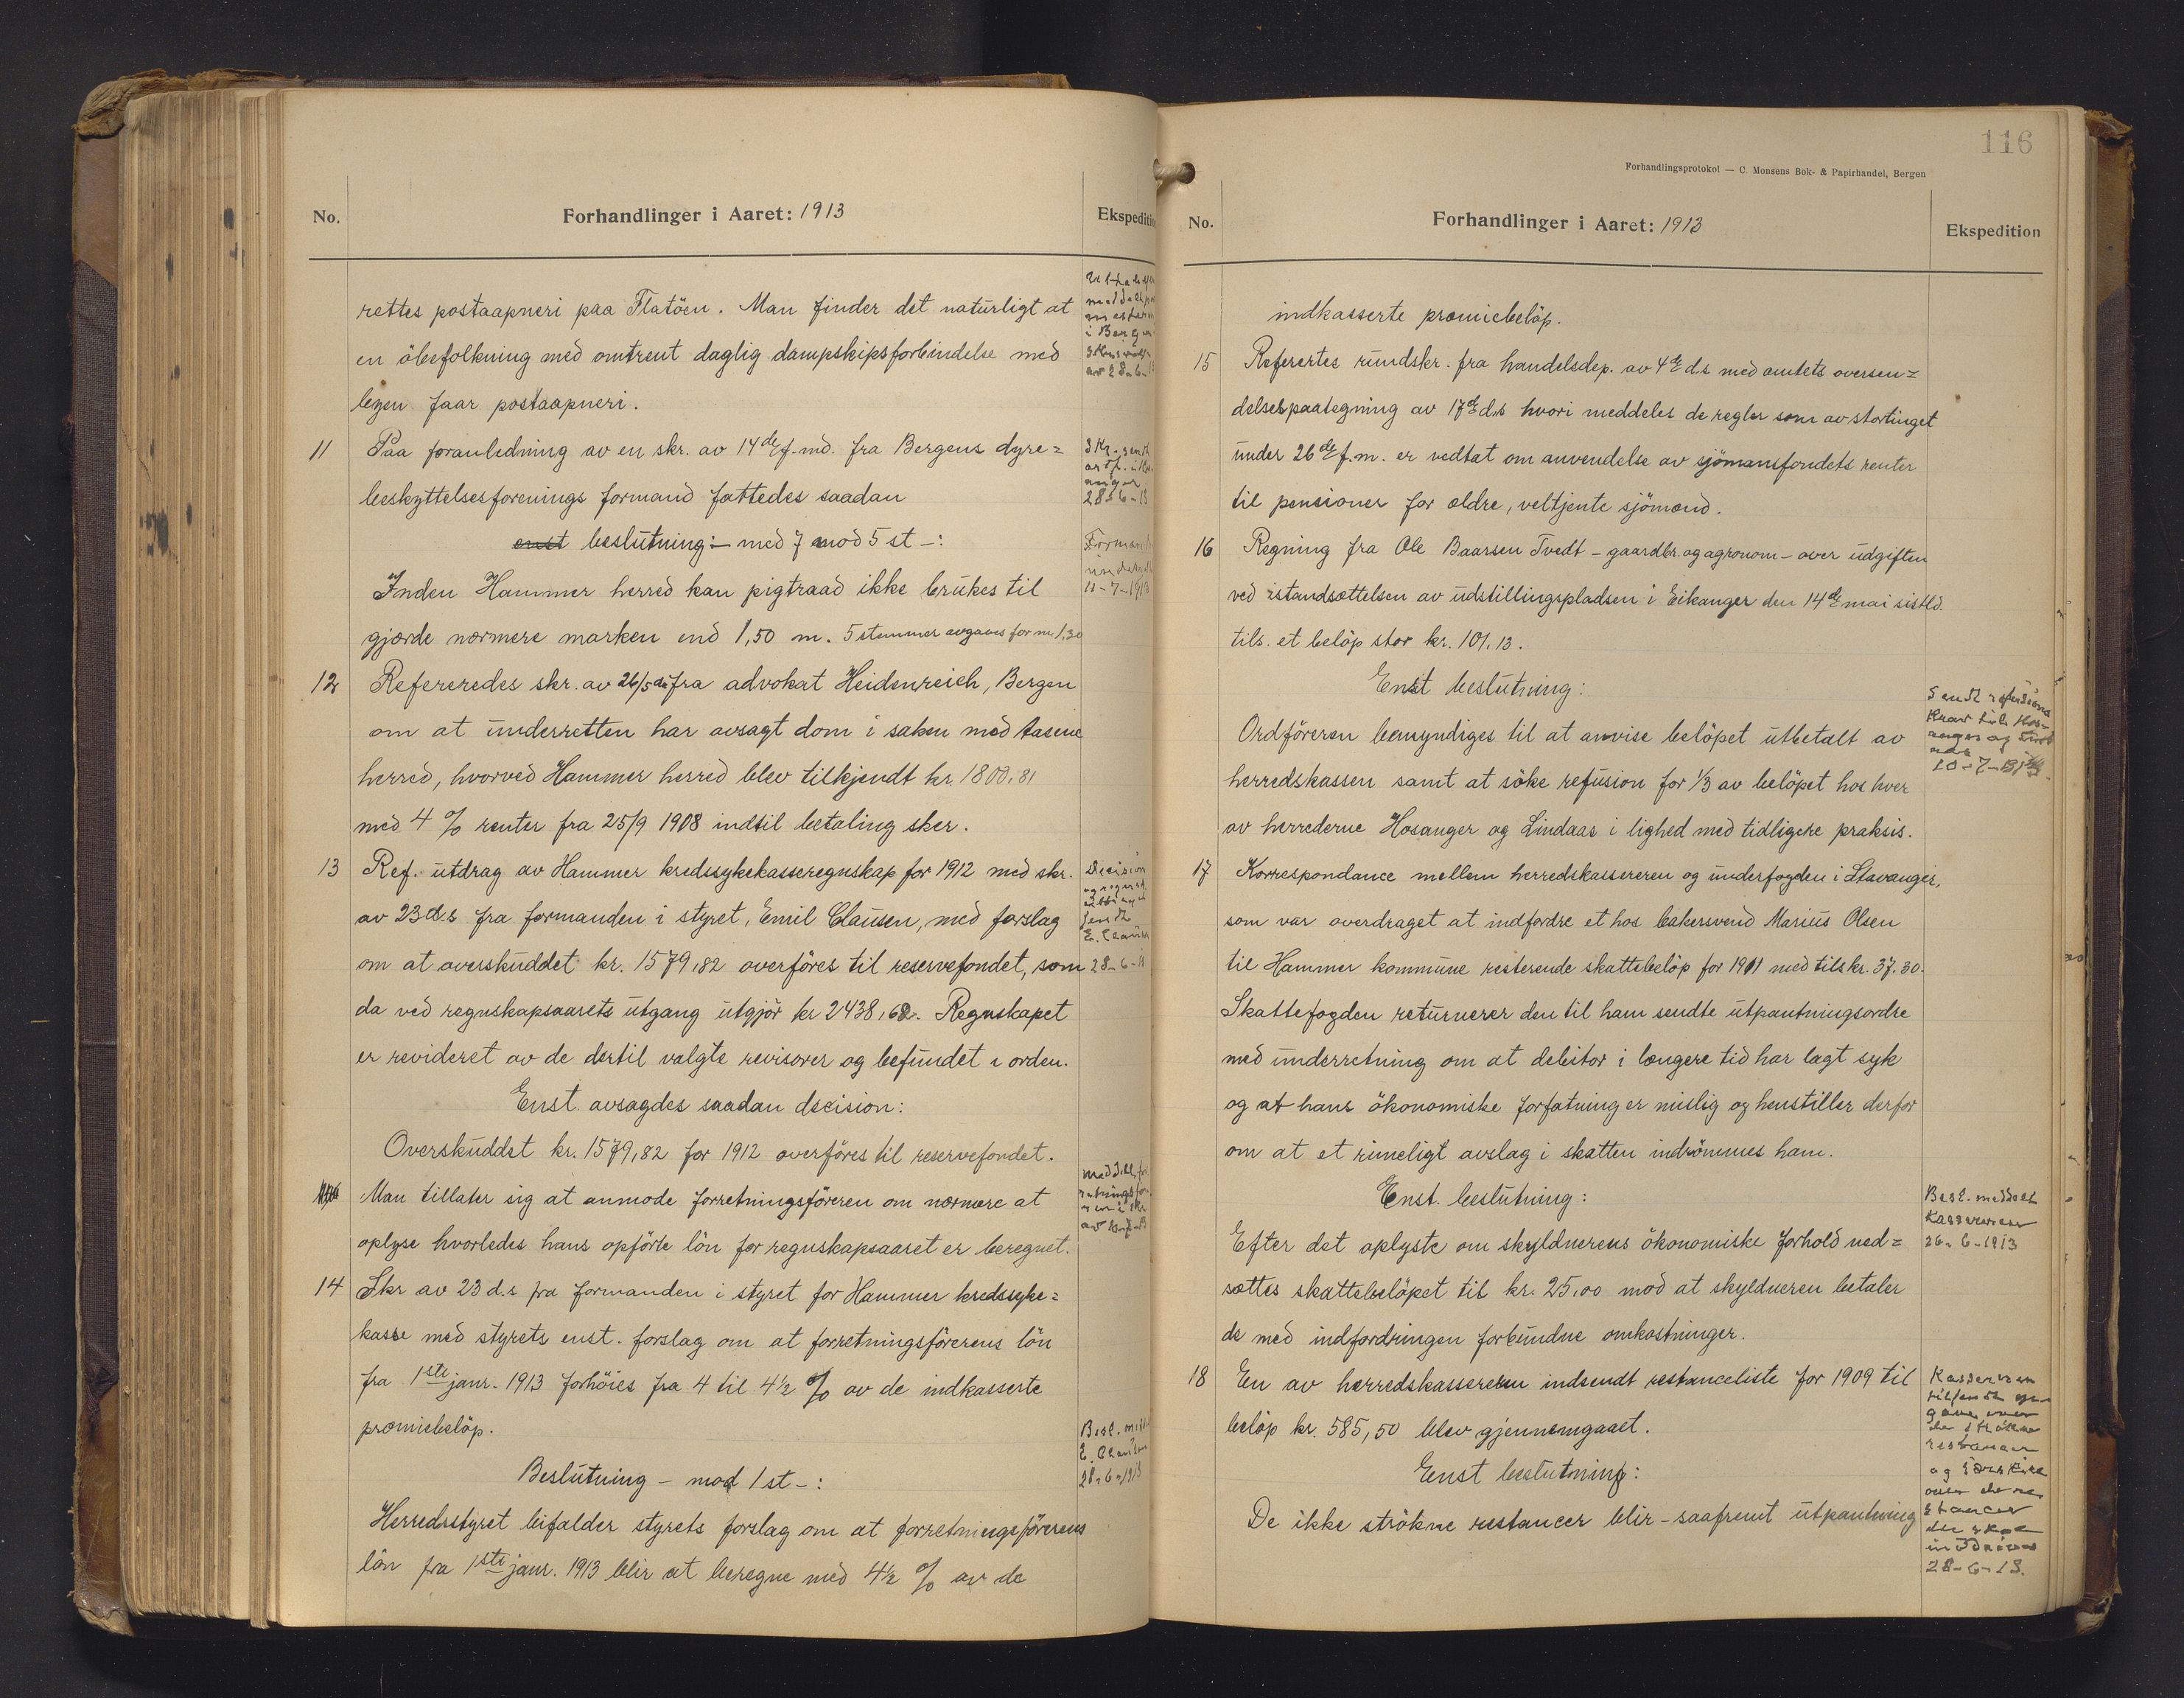 No.
Forhandlinger i Aaret: 1913
Ekspedition
rettes postaapneri paa Flatöen. Man finder det naturligt at
en öbefolkning med omtrent daglig dampskipsforbindelse med
byen faar postaapneri.
11 Paa foranledning av en skr. av 14de f. md. fra Bergens dyre=
beskyttelsesforenings formand fattedes saadan
enst beslutning:- med 7 mod 5 st -:
Inden Hammer herred kan pigtraad ikke brukes til
gjærde nærmere marken end 1,50 m. 5 stemmer avgaves for m 1,30
12 Refereredes skr. av 26/5 fra advokat Heidenreich, Bergen
om at underretten har avsagt dom i saken med Aasene
herred, hvorved Hammer herred blev tilkjendt kr. 1800,81
med 4 % renter fra 25/9 1908 indtil betaling sker.
13 Ref. utdrag av Hammer kredssykekasseregnskap for 1912 med skr.
av 23 d.s fra formanden i styret, Emil Clausen, med forslag
om at overskuddet kr. 1579,82 overföres til reservefondet, som
da ved regnskapsaarets utgang utgjör kr 2438,68. Regnskapet
er revideret av de dertil valgte revisorer og befundet i orden.
Enst. avsagdes saadan decision:
Overskuddet kr. 1579,82 for 1912 overföres til reservefondet.
Man tillater sig at anmode forretningsföreren om nærmere at
oplyse hvorledes hans opförte lön for regnskapsaaret er beregnet.
14 Skr av 23 d.s fra formanden i styret for Hammer kredssyke=
kasse med styrets enst. forslag om at forretningsförerens lön
fra 1ste janr. 1913 forhöies fra 4 til 4½ % av de indkasserte
præmiebelöp.
Beslutning - mod 1 st -:
Herredsstyret bifalder styrets forslag om at forretningsförerens
lön fra 1ste janr. 1913 blir at beregne med 4½ % av de
i Bergen
av 28-6-
Skr. sendt
28-6-13
Formand
11-7-1913
Decision
sendt
E. Clausen
28-6-13
meddelt
Besl.
E. Clausen
28-6-1913
116
Forhandlingsprotokol — C. Monsens Bok- & Papirhandel, Bergen
No.
Forhandlinger i Aaret: 1913
Ekspedition
indkasserte præmiebelöp.
15 Refertes rundskr. fra handelsdep. av 4de ds med amtets oversen=
delsespaategning av 17de ds hvori meddeles de regler som av stortinget
under 26de f.m. er vedtat om anvendelse av sjömansfondets renter
til pensioner for ældre, veltjente sjömænd.
16 Regning fra Ole Baarsen Tvedt - gaardbr. og agronom - over udgiften
ved istandsættelsen av udstillingspladsen i Eikanger den 14de mai sistl.
tils. et belöp stor kr. 101.13.
Enst beslutning:
Ordföreren bemyndiges til at anvise belöpet utbetalt av
herredskassen samt at söke refusion for 1/3 av belöpet hos hver
av herrederne Hosanger og Lindaas i lighed med tidligere praksis.
17 Korrespondance mellem herredskassereren og underfogden i Stavanger,
som var overdraget at indfordre et hos bakersvend Marius Olsen
til Hammer kommune resterende skattebelöp for 1911 med tils kr. 37.30.
Skattefogden returnerer den til ham sendte utpantningsordre
med underretning om at debitor i længere tid har lagt syk
og at hans ökonomiske forfatning er mislig og henstiller derfor
om at et rimeligt avslag i skatten indrömmes ham.
Enst. beslutning:
Efter det oplyste om skyldnerens ökonomiske forhold ned=
sættes skattebelöpet til kr. 25,00 mod at skyldneren betaler
de med indfordringen forbundne omkostninger.
18 En av herredskassereren indsendt restanceliste for 1909 til
belöp kr. 585,50 blev gjennemgaaet.
Enst beslutning:
De ikke strökne restancer blir - saafremt utpantning
Sendt refusions
krav til Hos-
anger og
10-7-
Besl. meddelt
Kassereren
26-6-1913
Kassereren
tilsendt
restancer
28-6-13.